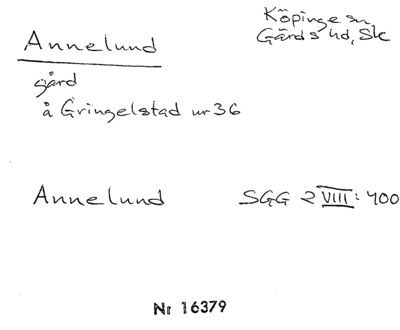 Annelund
Köpinge sn
Gärds hd, Sk
gård
å Gringelstad nr 36
Annelund SGG 2 VIII: 400
Nr 16379